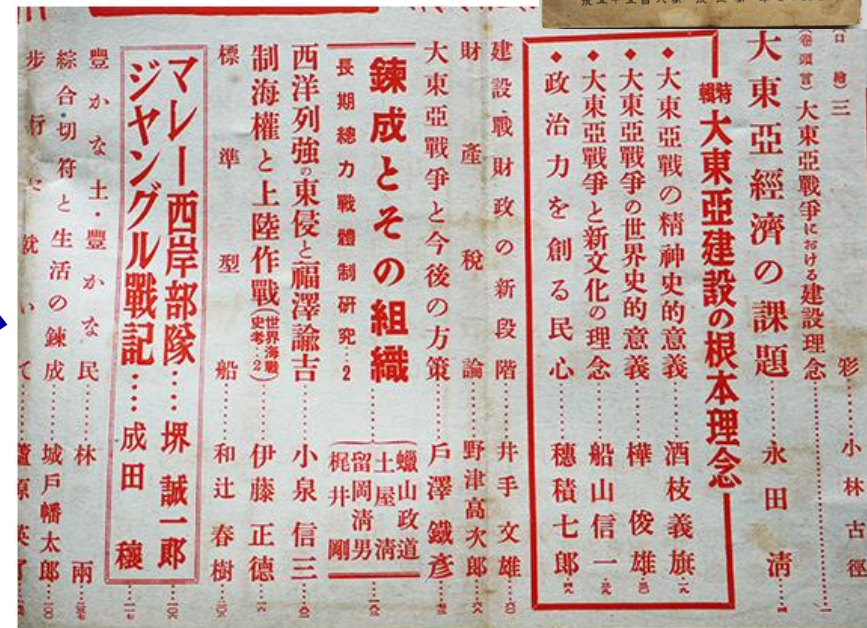 (口繪)三彩……小林古徑
(卷頭言)大東亞戰爭における建設理念……
大東亞經濟の課題……永田淸
特輯 大東亞建設の根本理念
◆大東亞戰の精神史的意義……酒枝義旗
◆大東亞戰爭の世界史的意義……樺俊雄
◆大東亞戰爭と新文化の理念……船山信一
◆政治力を創る民心……穗積七郎
建設戰財政の新段階……井手文雄
財產稅論……野津高次郎
大東亞戰爭と今後の方策……戶澤鐵彥
鍊成とその組織……
長期總力戰體制硏究…2
蠟山政道
土屋淸
留岡淸男
梶井剛
西洋列強の東侵と福澤諭吉……小泉信三
制海權と上陸作戰(世界海戰史考…2)……伊藤正德
標準型船……和辻春樹
マレー西岸部隊……堺誠一郎
ジャングル戰記……成田穰
豐かな土・豐かな民……林雨
綜合切符と生活の鍊成……城戶幡太郎
步行に就いて……葦原英了